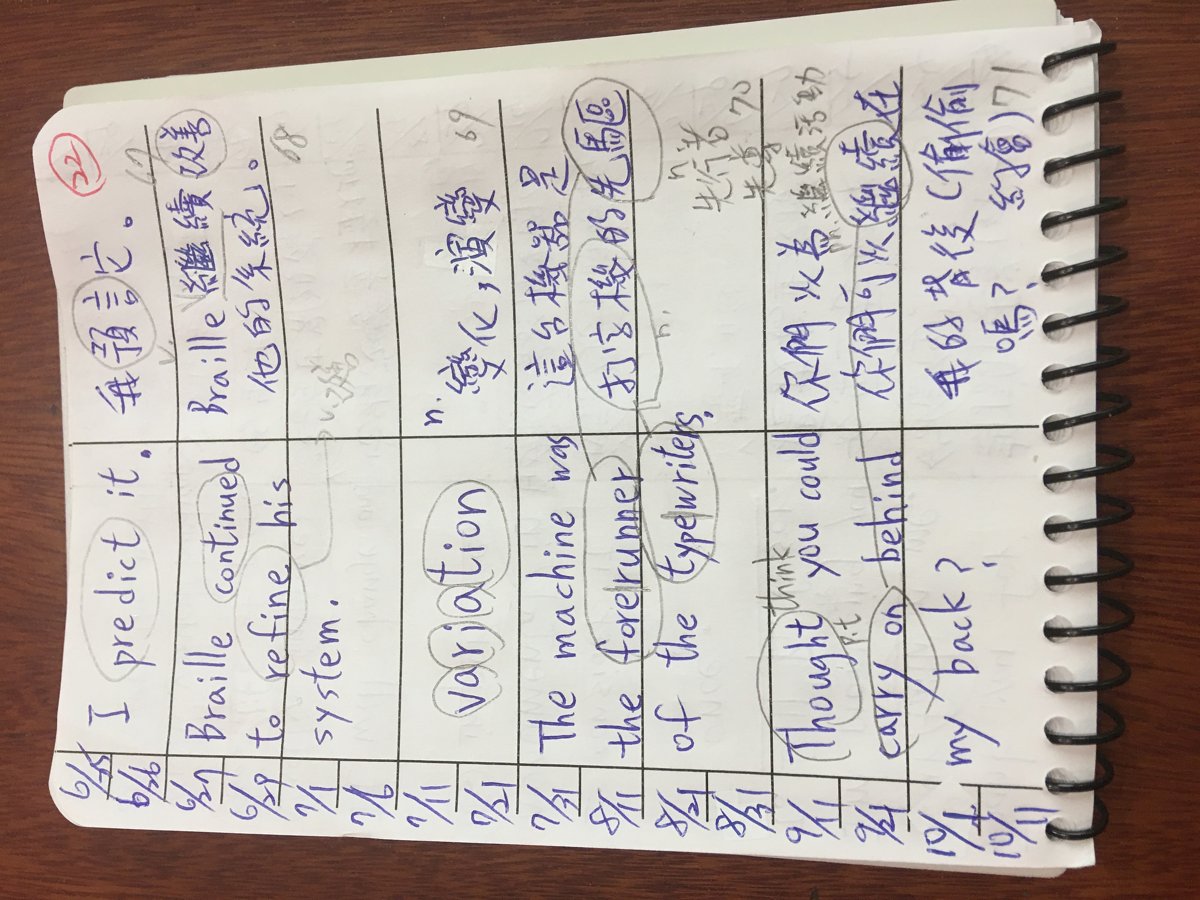 22
6/25
6/26
I predict it.
我預言它。
v.
67
6/27
6/29
Braille continued
to refine his
system.
Braille 繼續改善
他的系統。
v.改善
68
7/1
7/6
7/11
7/21
variation
n.
變化,演變
69
7/31
8/11
8/21
8/31
The machine was
the forerunner
of the typewriters.
這台機器是
打字機的先驅
n.
n.
先行者
先導
70
9/11
9/21
think
Thought you could
p.t
carry on behind
my back?
你們以為
ph.繼續活動
你們可以繼續在
我的背後(偷偷
嗎? 約會)
71
10/1
10/11